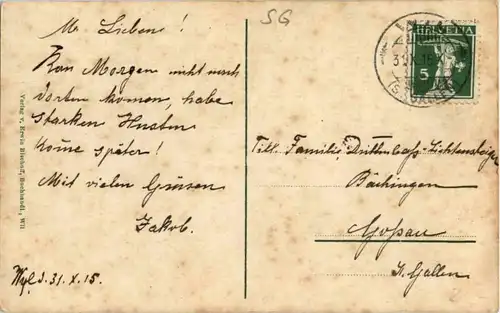 SG
M. Lieben!
Kan Morgen nicht nach
dorten komen, habe
starken Husten
kome später!
Mit vielen Grüssen
Jakob.
Wyl d. 31. X. 15.
Verlag v. Erwin Bischoff, Buchhandl., Wil
HELVETIA
5
31.X.15
Titl. Familie
Bächingen
Gossau
St. Gallen